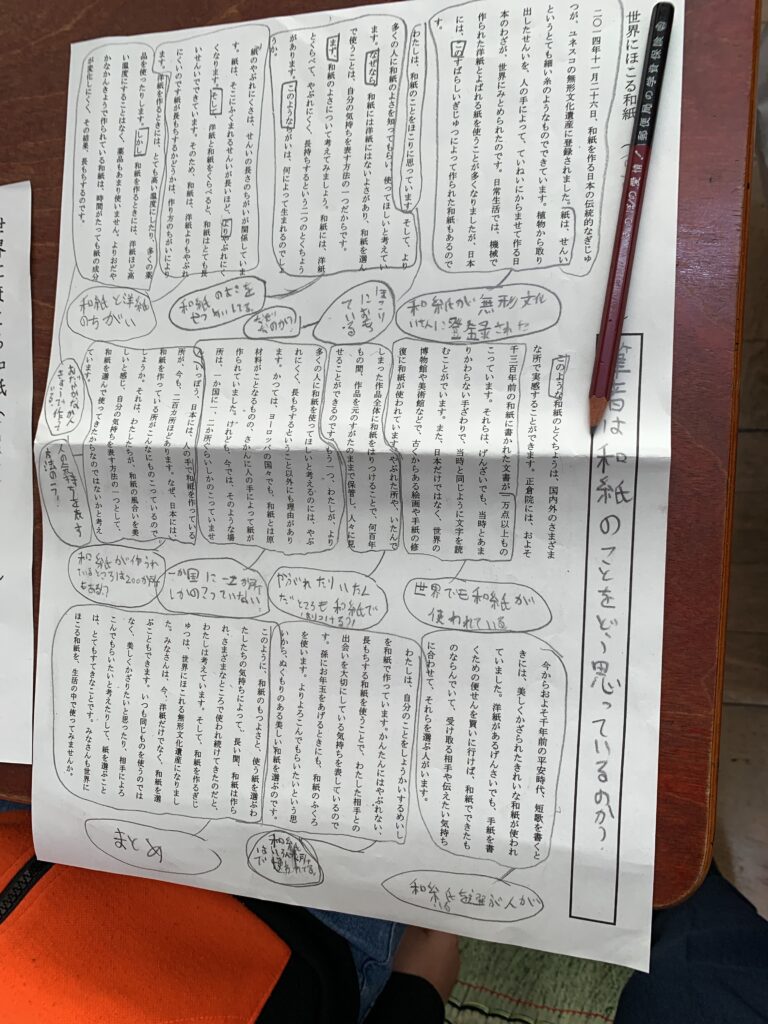 世界にほこる和紙
二〇一四年十一月二十六日、和紙を作る日本の伝統的なぎじゅ
つが、ユネスコの無形文化遺産に登録されました。紙は、せんい
というとても細い糸のようなものでできています。植物から取り
出したせんいを、人の手によって、ていねいにからませて作る日
本のわざが、世界にみとめられたのです。日常生活では、機械で
作られた洋紙とよばれる紙を使うことが多くなりましたが、日本
には、このすばらしいぎじゅつによって作られた和紙もあるので
す。
わたしは、和紙のことをほこりに思っています。そして、より
多くの人に和紙のよさを知ってもらい、使ってほしいと考えてい
ます。なぜなら、和紙には洋紙にはないよさがあり、和紙を選ん
で使うことは、自分の気持ちを表す方法の一つだからです。
まず、和紙のよさについて考えてみましょう。和紙には、洋紙
とくらべて、やぶれにくく、長持ちするという二つのとくちょう
があります。このようなちがいは、何によって生まれるのでしょ
うか。
紙のやぶれにくさは、せんいの長さのちがいが関係していま
す。紙は、そこにふくまれるせんいが長いほど、よりやぶれにく
くなります。そして、洋紙と和紙をくらべると、和紙はとても長
いせんいでできています。そのため、和紙は、洋紙よりもやぶれ
にくいのです。紙が長もちするかどうかは、作り方のちがいにより
ます。洋紙を作るときには、とても高い温度にしたり、多くの薬
品を使ったりします。しかし、和紙を作るときには、洋紙ほど高
い温度にすることはなく、薬品もあまり使いません。よりおだや
かなかんきょうで作られている和紙は、時間がたっても紙の成分
が変化しにくく、その結果、長もちするのです。
このような和紙のとくちょうは、国内外のさまざま
な所で実感することができます。正倉院には、およそ
千三百年前の和紙に書かれた文書が一万点以上もの
こっています。それらは、げんざいでも、当時とあま
りかわらない手ざわりで、当時と同じように文字を読
むことができています。また、日本だけではなく、世界の
博物館や美術館などで、古くからある絵画や手紙の修
復に和紙が使われています。やぶれた所や、いたんで
しまった作品全体に和紙をはりつけることで、何百年
もの間、作品を元のすがたのままで保管し、人々に見
せることができるのです。もう一つ、わたしが、より
多くの人に和紙を使ってほしいと考えるのには、やぶ
れにくく、長もちするということ以外にも理由があり
ます。かつては、ヨーロッパの国々でも、和紙とは原
材料がことなるものの、さかんに人の手によって紙が
作られていました。けれども、今では、そのような場
所は、一か国に一、二か所ぐらいしかのこっていませ
ん。いっぽう、日本には、人の手で和紙を作っている
所が、今も、二百か所ほどあります。なぜ、日本には、
和紙を作っている所がこんなにものこっているので
しょうか。それは、わたしたちが、和紙の風合いを美
しいと感じ、自分の気持ちを表す方法の一つとして、
和紙を選んで使ってきたからなのではないかと考え
ています。
今からおよそ千年前の平安時代、短歌を書くと
きには、美しくかざられたきれいな和紙が使われ
ていました。洋紙があるげんざいでも、手紙を書
くための便せんを買いに行けば、和紙でできたも
のならんでいて、受け取る相手や伝えたい気持ち
に合わせて、それらを選ぶ人がいます。
わたしは、自分のことをしょうかいするめいし
を和紙で作っています。かんたんにはやぶれない、
長もちする和紙を使うことで、わたした相手との
出会いを大切にしている気持ちを表しているので
す。孫にお年玉をあげるときにも、和紙のふくろ
を使います。よりよろこんでもらいたいという思
いから、ぬくもりのある美しい和紙を選ぶのです。
このように、和紙のもつよさと、使う紙を選ぶわ
たしたちの気持ちによって、長い間、和紙は作ら
れ、さまざまなところで使われ続けてきたのだと、
わたしは考えています。そして、和紙を作るぎじ
ゅつは、世界にほこれる無形文化遺産になりまし
た。みなさんは、今、洋紙だけでなく、和紙を選
ぶこともできます。いつも同じものを使うのでは
なく、美しくかざりたいと思ったり、相手によろ
こんでもらいたいと考えたりして、紙を選ぶこと
は、とてもすてきなことです。みなさんも世界に
ほこる和紙を、生活の中で使ってみませんか。
筆者は和紙のことをどう思っているのか？
和紙が無形文化
いさんに登録された
ほこり
に思っ
ている
和紙のよさを
和紙と洋紙
のちがい
世界でも和紙が
使われている
やぶれたりいたん
だところも和紙で
一か国に一、二か所
しかのこっていない
和紙が作られ
ているところは200か所
もある!?
人の気持ちを表す
方法の一つ
和紙を選ぶ人が
いる
まとめ